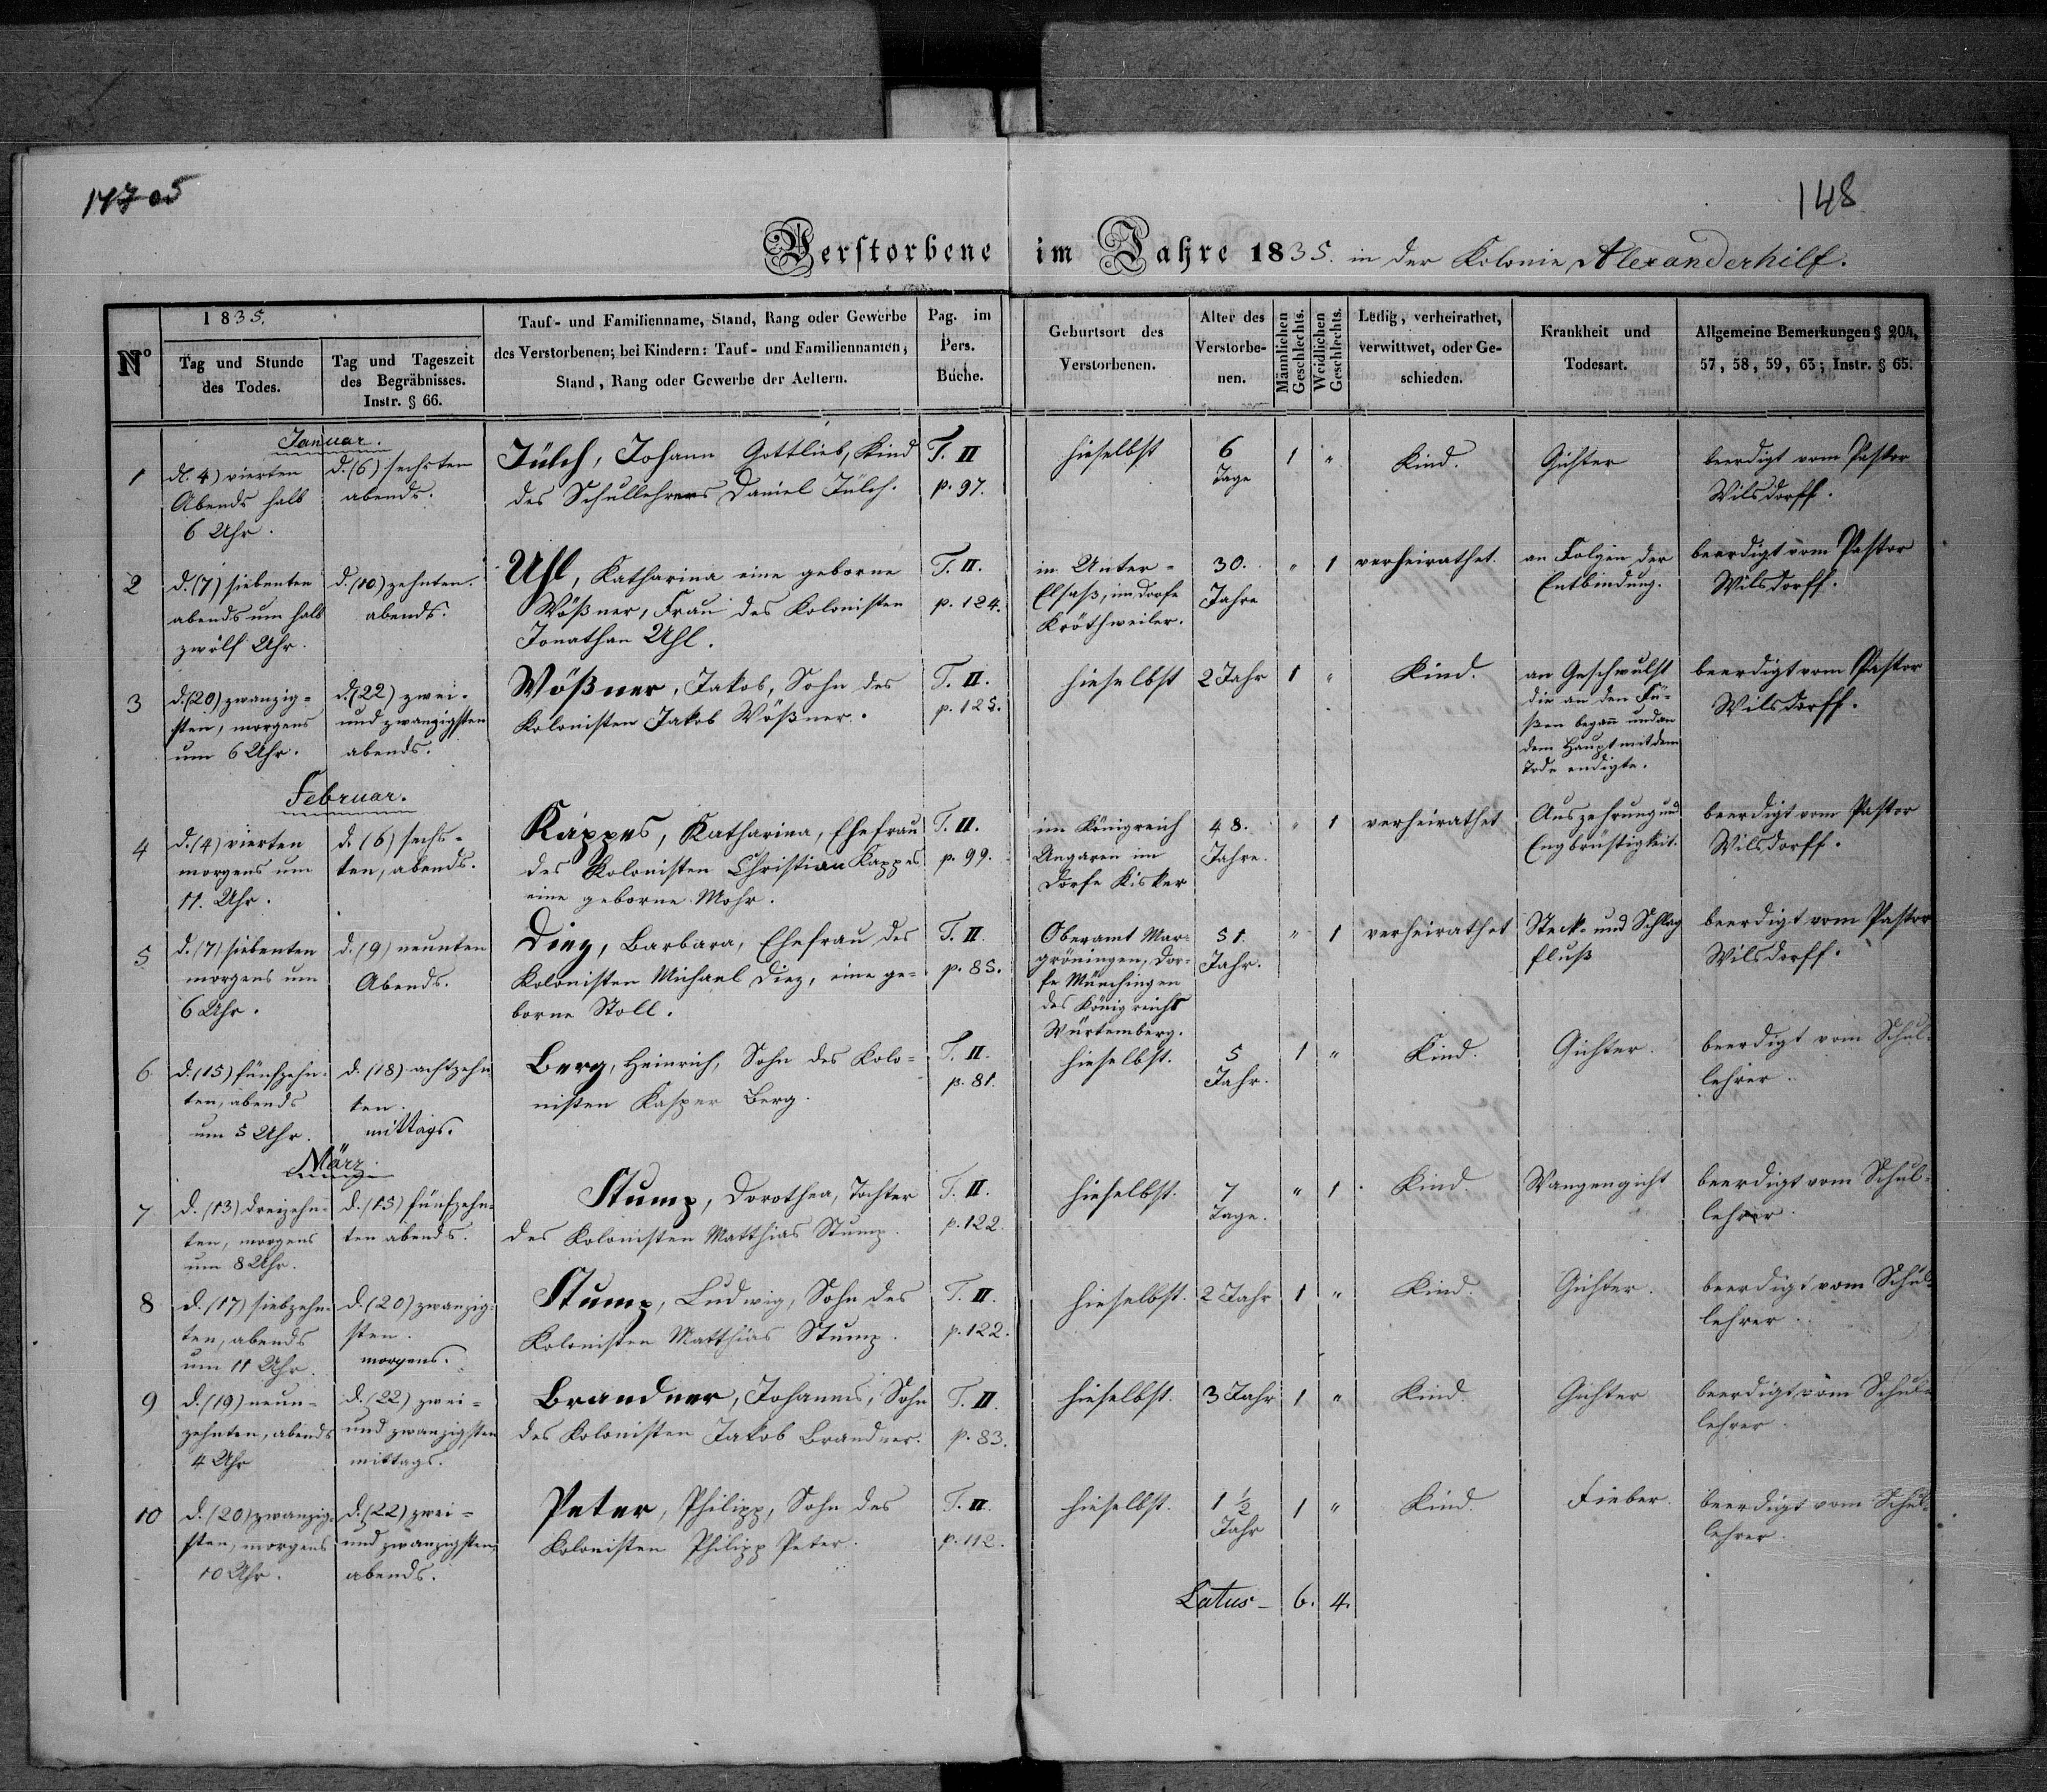 14705
148
Verstorbene im Jahre 1835. in der Kolonie Alexanderhilf.
No
1835.
Tag und Stunde
des Todes.
Tag und Tageszeit
des Begräbnisses.
Instr. § 66.
Tauf- und Familienname, Stand, Rang oder Gewerbe
des Verstorbenen; bei Kindern: Tauf- und Familiennamen,
Stand, Rang oder Gewerbe der Aeltern.
Pag. im
Pers.
Buche.
Geburtsort des
Verstorbenen.
Alter des
Verstorbe-
nen.
Männlichen
Geschlechts.
Weiblichen
Geschlechts.
Ledig, verheirathet,
verwittwet, oder Ge-
schieden.
Krankheit und
Todesart.
Allgemeine Bemerkungen § 204,
57, 58, 59, 63; Instr. § 65.
Januar.
1
d. 4) vierten
Abends halb
6 Uhr.
d. (6) sechsten
abends.
Jülch, Johann Gottlieb, Kind
des Schullehrers Daniel Jülch.
T. II
p. 97.
hieselbst
6
Tage
1
"
Kind.
Gichter
beerdigt vom Pastor
Wilsdorff.
2
d. (7) siebenten
abends um halb
zwölf Uhr.
d. (10) zehnten.
abends.
Uhl, Katharina eine geborne
Wößner, Frau des Kolonisten
Jonathan Uhl.
T. II.
p. 124.
in Unter-
Elsaß, im Dorfe
Kröthweiler.
30.
Jahre
"
1
verheirathet.
an Folgen der
Entbindung.
beerdigt vom Pastor
Wilsdorff.
3
d. (20) zwanzig-
sten, morgens
um 6 Uhr.
d. (22) zwei-
und zwanzigsten
abends.
Wößner, Jakob, Sohn des
Kolonisten Jakob Wößner.
T. II.
p. 125.
hieselbst
2 Jahr
1
"
Kind.
an Geschwulst
die an den Fü-
ßen begann und an
dem Haupt mit dem
Tode endigte.
beerdigt vom Pastor
Wilsdorff.
Februar.
4
d. (4) vierten
morgens um
11. Uhr.
d. (6) sechs-
ten, abends.
Kappes, Katharina, Ehefrau
des Kolonisten Christian Kappes
eine geborne Mohr.
T. II.
p. 99.
im Königreich
Ungaren im
Dorfe Kisker
48.
Jahre.
"
1
verheirathet
Auszehrung und
Engbrüstigkeit.
beerdigt vom Pastor
Wilsdorff.
5
d. (7) siebenten
morgens um
6 Uhr.
d. (9) neunten
Abends.
Diez, Barbara, Ehefrau des
Kolonisten Michael Diez, eine ge-
borne Stoll.
T. II.
p. 85.
Oberamt Mar-
gröningen, Dor-
fe Münchingen
des Königreichs
Würtemberg.
51.
Jahr.
"
1
verheirathet
Steck- und Schlag
fluß
beerdigt vom Pastor
Wilsdorff.
6
d. (15) fünfzehn-
ten, abends
um 5 Uhr.
d. (18) achtzehn
ten.
mittags.
Berg, Heinrich, Sohn des Kolo-
nisten Kasper Berg.
T. II.
p. 81.
hieselbst.
5
Jahr.
1
"
Kind.
Gichter.
beerdigt vom Schul-
lehrer.
März.
7
d. (13) dreizehn-
ten, morgens
um 8 Uhr.
d. (15) fünfzehn-
ten abends.
Stump, Dorothea, Tochter
des Kolonisten Matthias Stump.
T. II.
p. 122.
hieselbst.
7
Tage.
"
1
Kind.
Wangengicht
beerdigt vom Schul-
lehrer.
8
d. (17) siebzehn-
ten, abends
um 11 Uhr.
d. (20) zwanzig-
sten.
morgens.
Stump, Ludwig, Sohn des
Kolonisten Matthias Stump.
T. II.
p. 122.
hieselbst.
2 Jahr
1
"
Kind.
Gichter.
beerdigt vom Schul-
lehrer.
9
d. (19) neun-
zehnten, abends
4 Uhr
d. (22) zwei-
und zwanzigsten
mittags.
Brandner, Johannes, Sohn
des Kolonisten Jakob Brandner.
T. II.
p. 83.
hieselbst.
3 Jahr
1
"
Kind.
Gichter
beerdigt vom Schul-
lehrer.
10
d. (20) zwanzig-
sten, morgens
10 Uhr.
d. (22) zwei-
und zwanzigsten,
abends.
Peter, Philipp, Sohn des
Kolonisten Philipp Peter.
T. II.
p. 112.
hieselbst.
1 1/2
Jahr
1
"
Kind.
Fieber.
beerdigt vom Schul-
lehrer.
Latus- 6. 4.